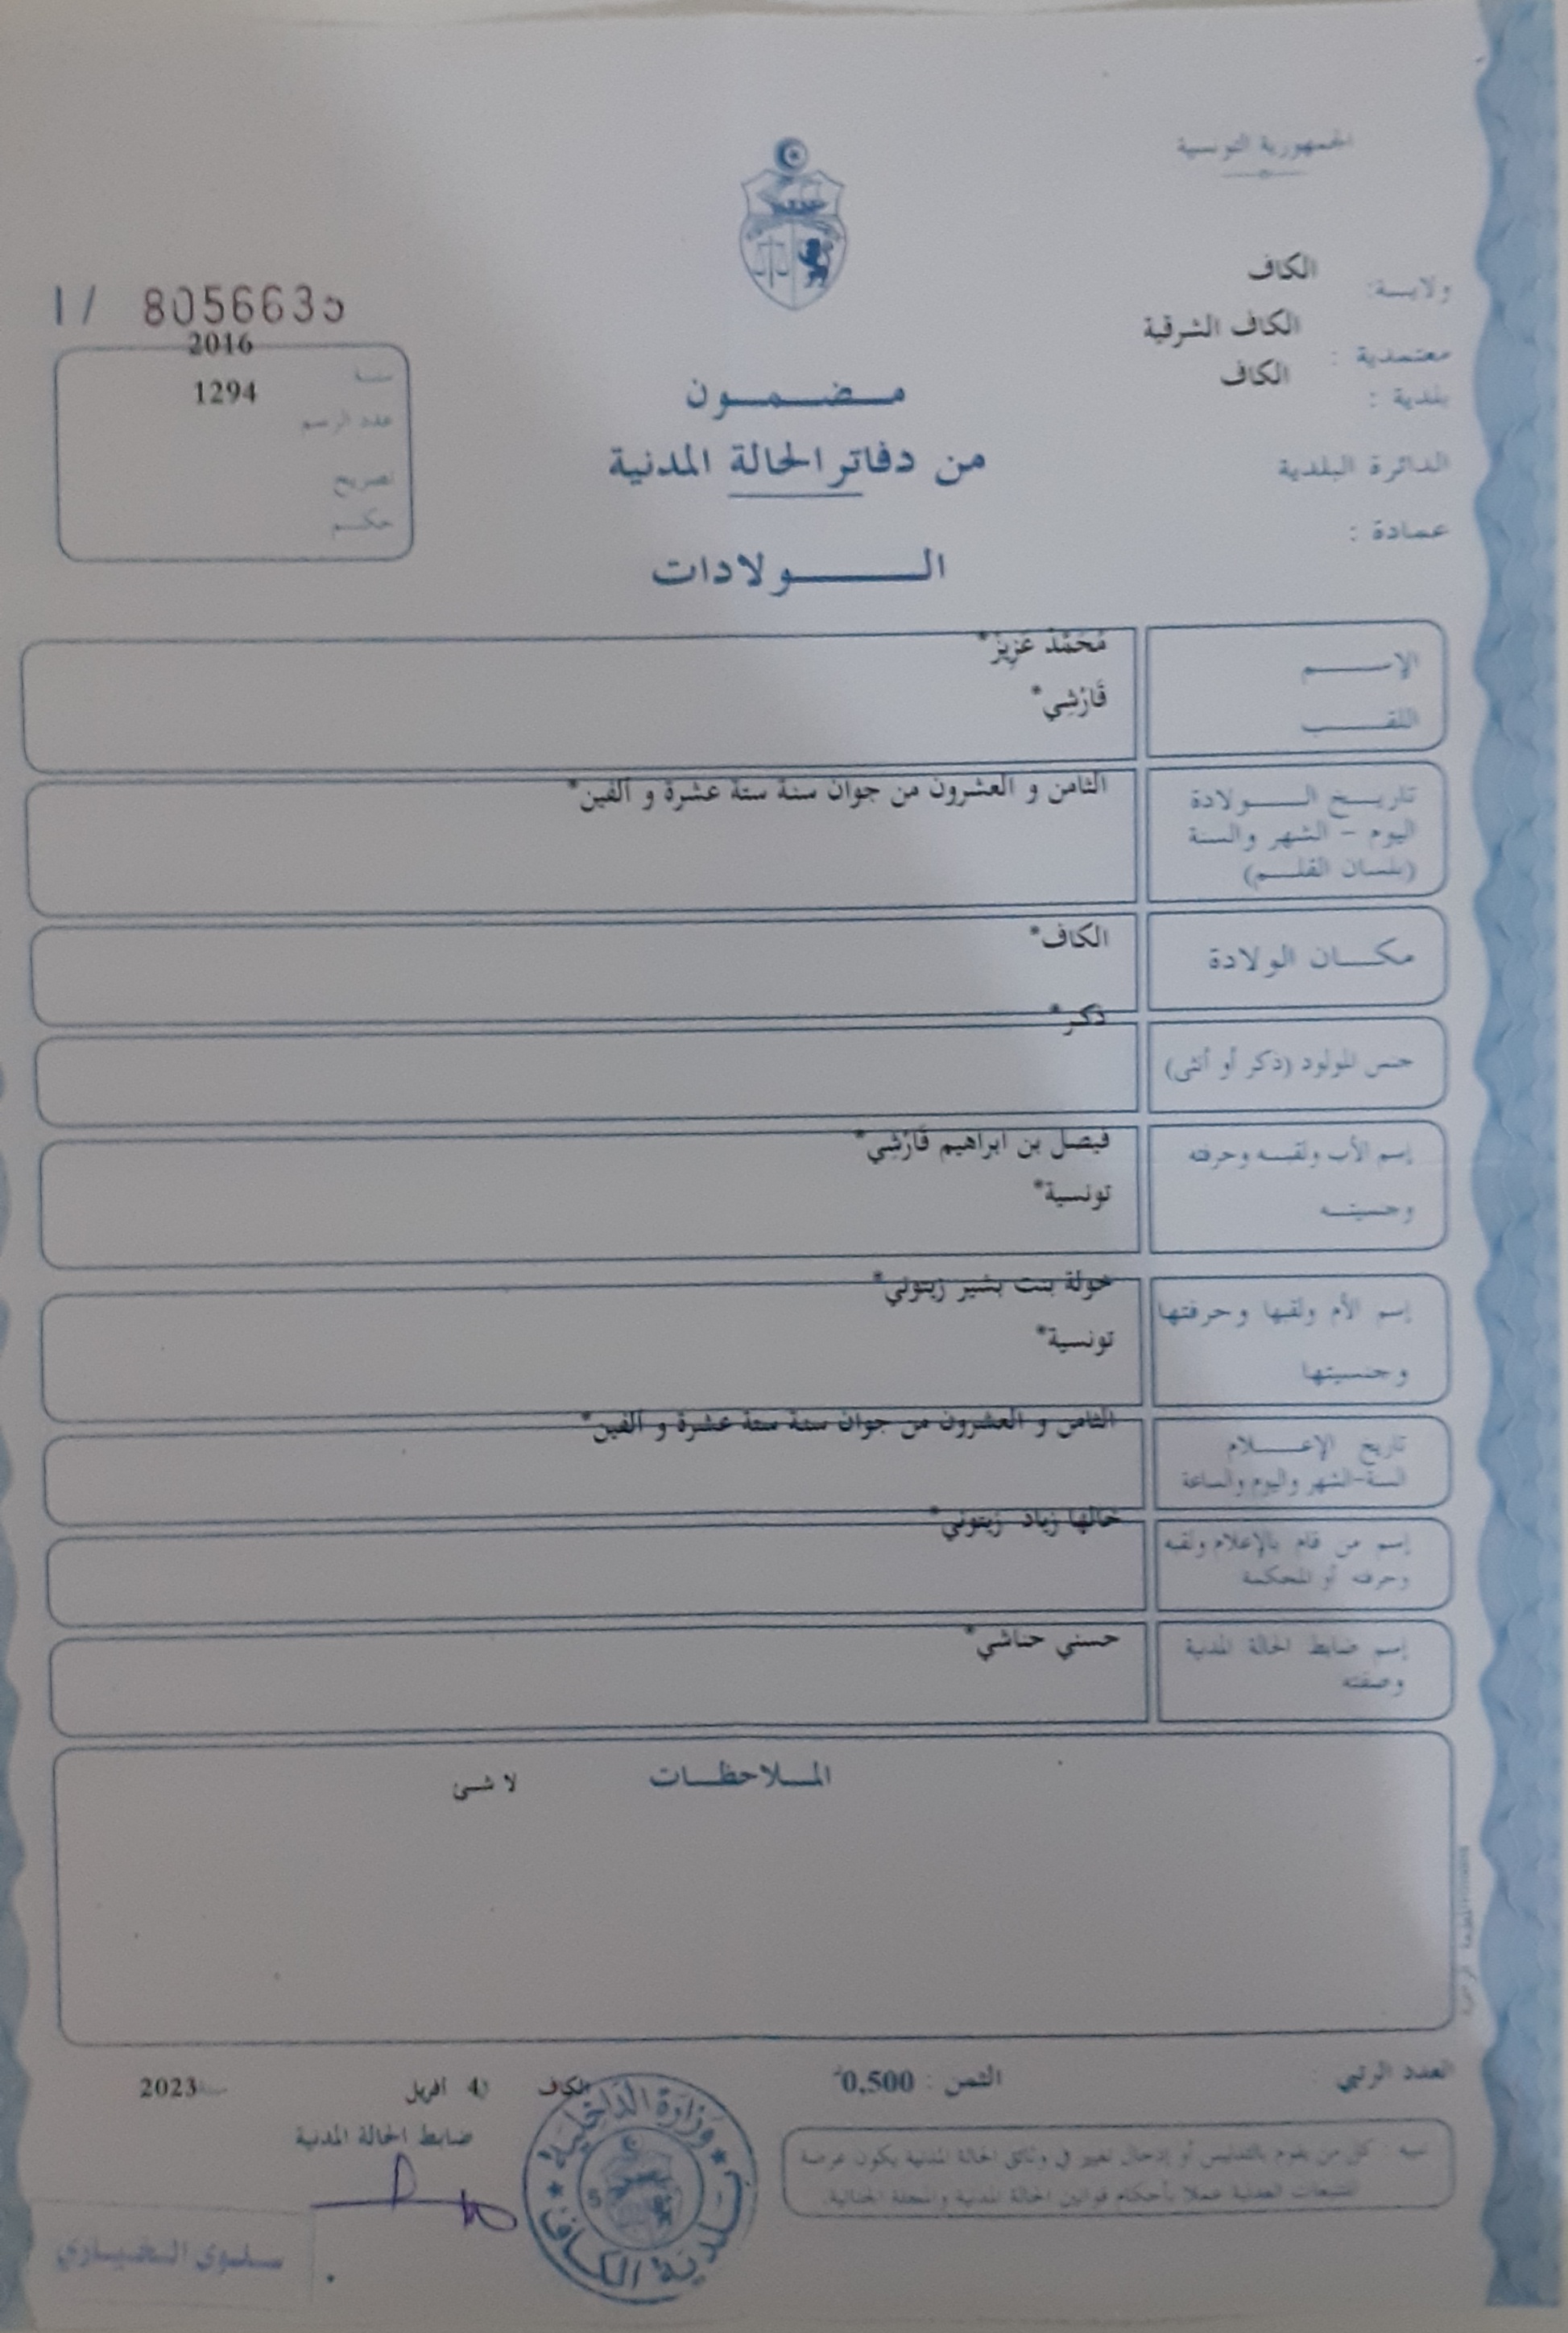 الجمهورية التونسية
ولايـــة: الكاف
معتمدية : الكاف الشرقية
بلدية : الكاف
الدائرة البلدية
عمادة :
I/ 805663
2016
سنة
1294
عدد الرسم
تصريح
حكـــم
مـــضـــمـــون
من دفاتر الحالة المدنية
الـــــولادات
الإســـــم
مُحَمَّدْ عَزِيزْ*
اللقـــب
قَارْشِي*
تاريــخ الـــــولادة
اليوم - الشهر والسنة
(بلسان القلـــم)
الثامن و العشرون من جوان سنة ستة عشرة و ألفين*
مكـــان الولادة
الكاف*
جنس المولود (ذكر أو أنثى)
ذكر*
إسم الأب ولقبـــه وحرفته
فيصل بن ابراهيم قَارْشِي*
وجنسيتـــه
تونسية*
إسم الأم ولقبها وحرفتها
خولة بنت بشير زيتوني*
وجنسيتها
تونسية*
تاريخ الإعـــــلام
السنة-الشهر واليوم والساعة
الثامن و العشرون من جوان سنة ستة عشرة و ألفين*
إسم من قام بالإعلام ولقبه
وحرفته أو المحكمة
خالها زياد زيتوني*
إسم ضابط الحالة المدنية
وصفته
حسني حناشي*
المـــلاحظـــات
لا شئ
العدد الرتبي
الثمن : 0,500
الكاف
4 أفريل
سنة 2023
ضابط الحالة المدنية
تنبيه : كل من يقوم بالتدليس أو إدخال تغيير في وثائق الحالة المدنية يكون عرضة
للتتبعات العدلية عملا بأحكام قوانين الحالة المدنية والمجلة الجنائية.
وزارة الداخلية
بلدية الكاف
5
سلوى